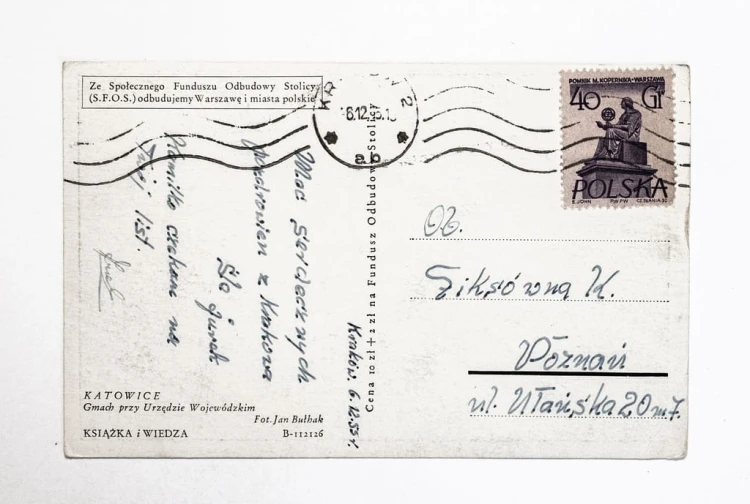 Ze Społecznego Funduszu Odbudowy Stolicy
(S.F.O.S.) odbudujemy Warszawę i miasta polskie
6.12.
ab
POMNIK M. KOPERNIKA-WARSZAWA
40 Gr
POLSKA
Moc serdecznych
pozdrowień z Krakowa
śle Jurek
Kamilko czekam na
Twój list.
Kraków. 6.12.55 r.
Cena 10 zł + 2 zł na Fundusz Odbudowy Stolicy
Ob.
Siksówna K.
Poznań
ul. Ułańska 20 m 7.
KATOWICE
Gmach przy Urzędzie Wojewódzkim
Fot. Jan Bułhak
KSIĄŻKA i WIEDZA
B-112126